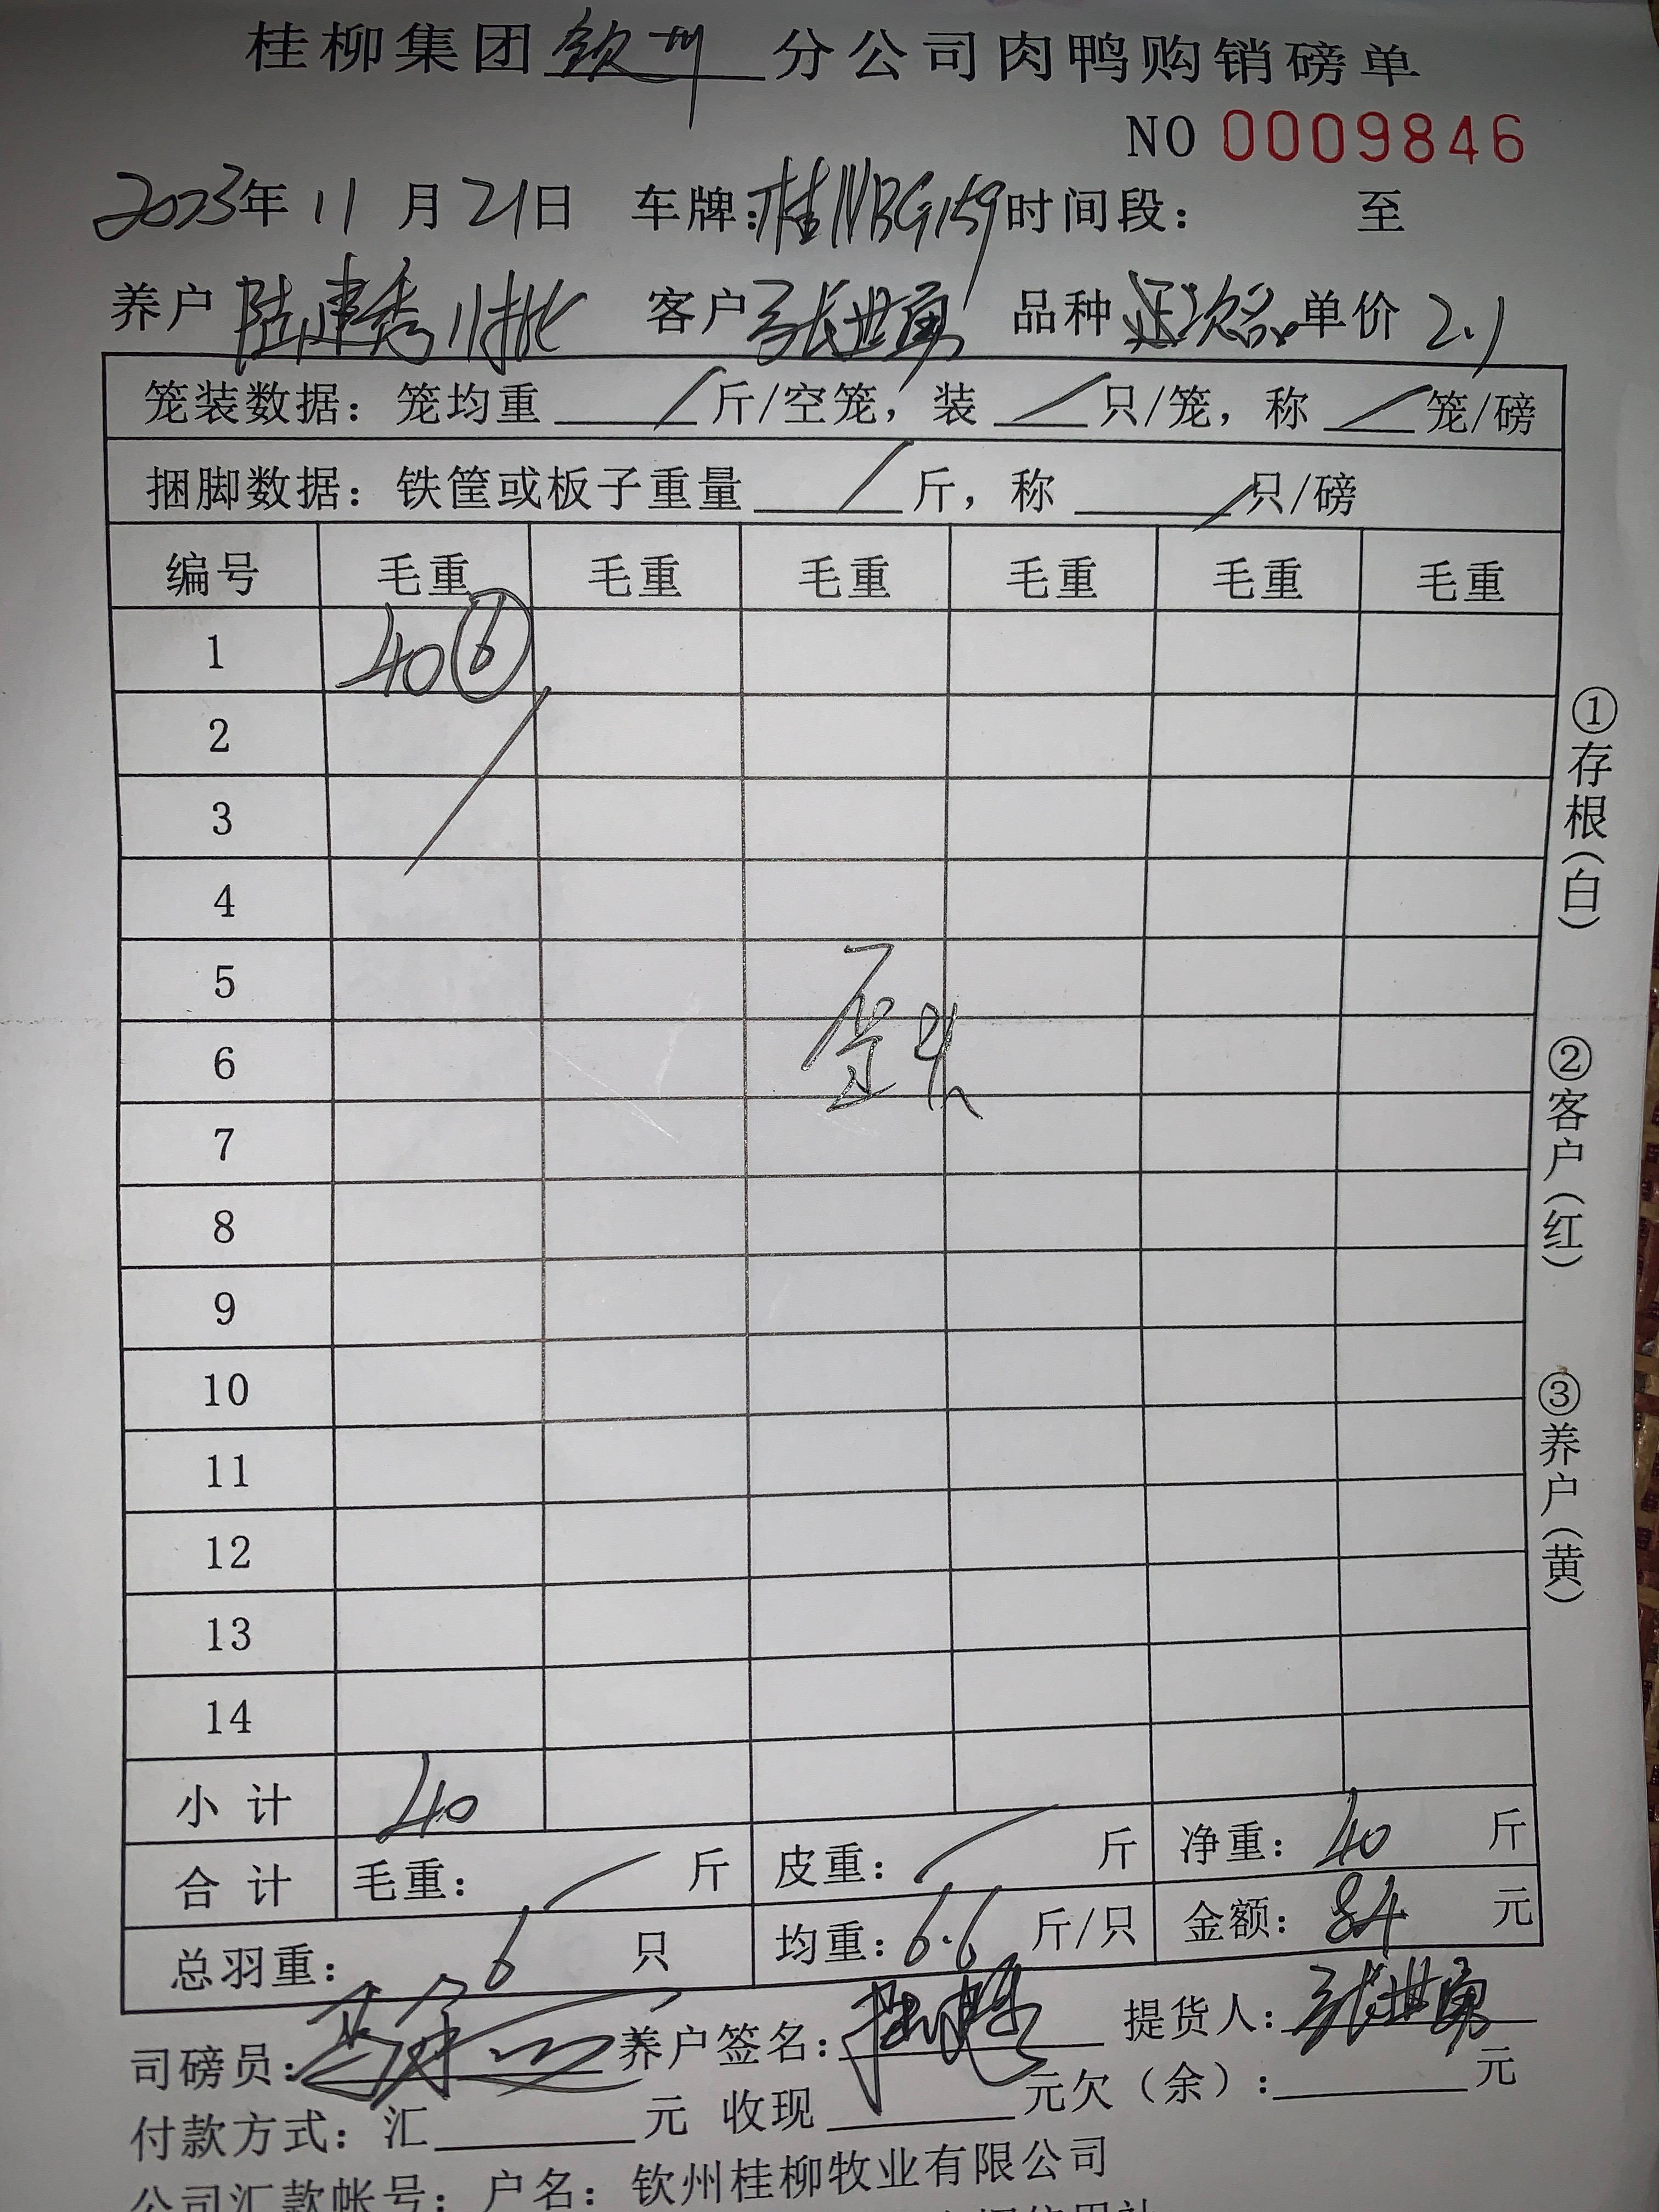 桂柳集团钦州分公司肉鸭购销磅单
NO 0009846
2023年11月21日 车牌:桂NBG159时间段: 至
养户 陆建秀11批 客户 张世勇 品种 次品 单价 2.1
笼装数据: 笼均重 / 斤/空笼, 装 / 只/笼, 称 / 笼/磅
捆脚数据: 铁筐或板子重量 / 斤, 称 / 只/磅
编号 毛重 毛重 毛重 毛重 毛重 毛重
1 40 ⑥
2
3
4
5
6
7
8
9
10
11
12
13
14
小计 40
合计 毛重: / 斤 皮重: / 斤 净重: 40 斤
总羽重: 6 只 均重: 6.6 斤/只 金额: 84 元
司磅员: 养户签名: 提货人: 张世勇
付款方式: 汇 元 收现 元欠(余): 元
公司汇款帐号: 户名: 钦州桂柳牧业有限公司
①存根(白)
②客户(红)
③养户(黄)